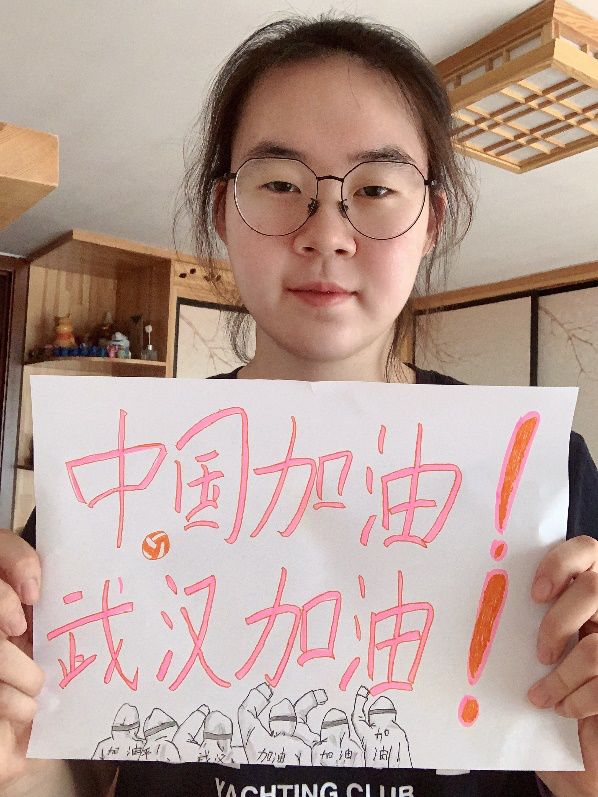 中国加油！
武汉加油！
加油
武汉
加油
加油
加油！
YACHTING CLUB